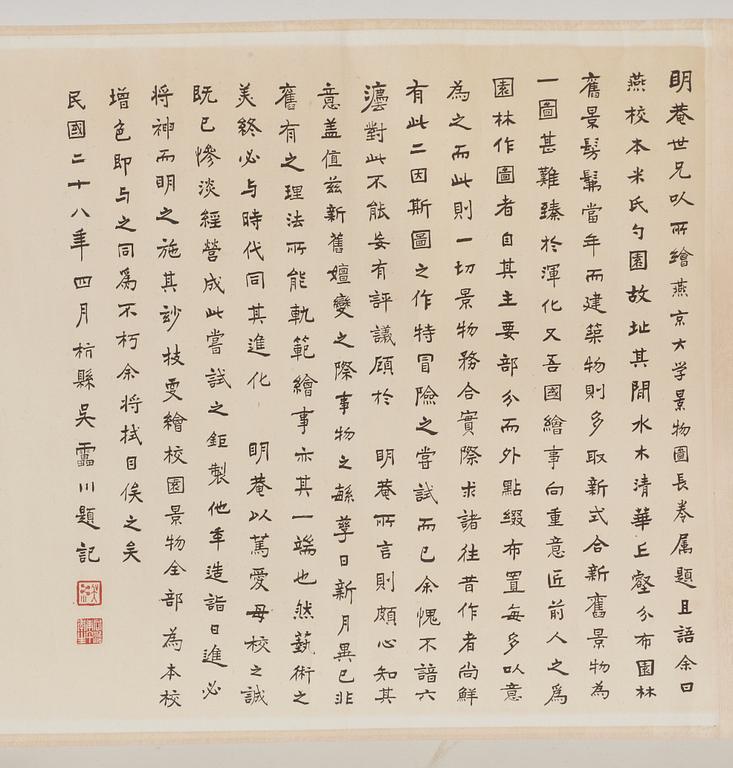 明菴世兄以所繪燕京大学景物圖長卷属題且語余曰
燕校本米氏勺園故址其間水木清華丘壑分布園林
舊景髣髴當年而建築物則多取新式合新舊景物為
一圖甚難臻於渾化又吾國繪事向重意匠前人之為
園林作圖者自其主要部分而外點綴布置每多以意
為之而此則一切景物務合實際求諸往昔作者尚鮮
有此二因斯圖之作特冒險之嘗試而已余愧不諳六
灋對此不能妄有評議顧於 明菴所言則頗心知其
意盖值兹新舊嬗變之際事物之緐孳日新月異已非
舊有之理法所能軌範繪事亦其一端也然藝術之
美終必与時代同其進化 明菴以篤愛母校之誠
既已慘淡經營成此嘗試之鉅製他年造詣日進必
將神而明之施其妙技更繪校園景物全部為本校
增色即与之同為不朽余将拭目俟之矣
民國二十八年四月杭縣吳靁川題記